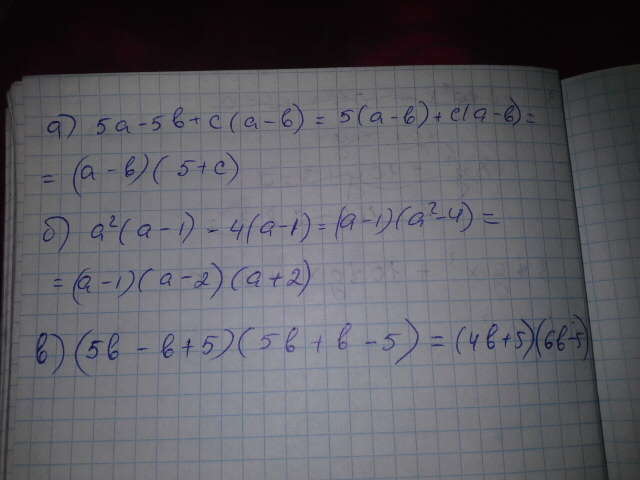 а) 5a-5b+c(a-b)=5(a-b)+c(a-b)=
=(a-b)(5+c)
б) a²(a-1)-4(a-1)=(a-1)(a²-4)=
=(a-1)(a-2)(a+2)
в) (5b-b+5)(5b+b-5)=(4b+5)(6b-5)